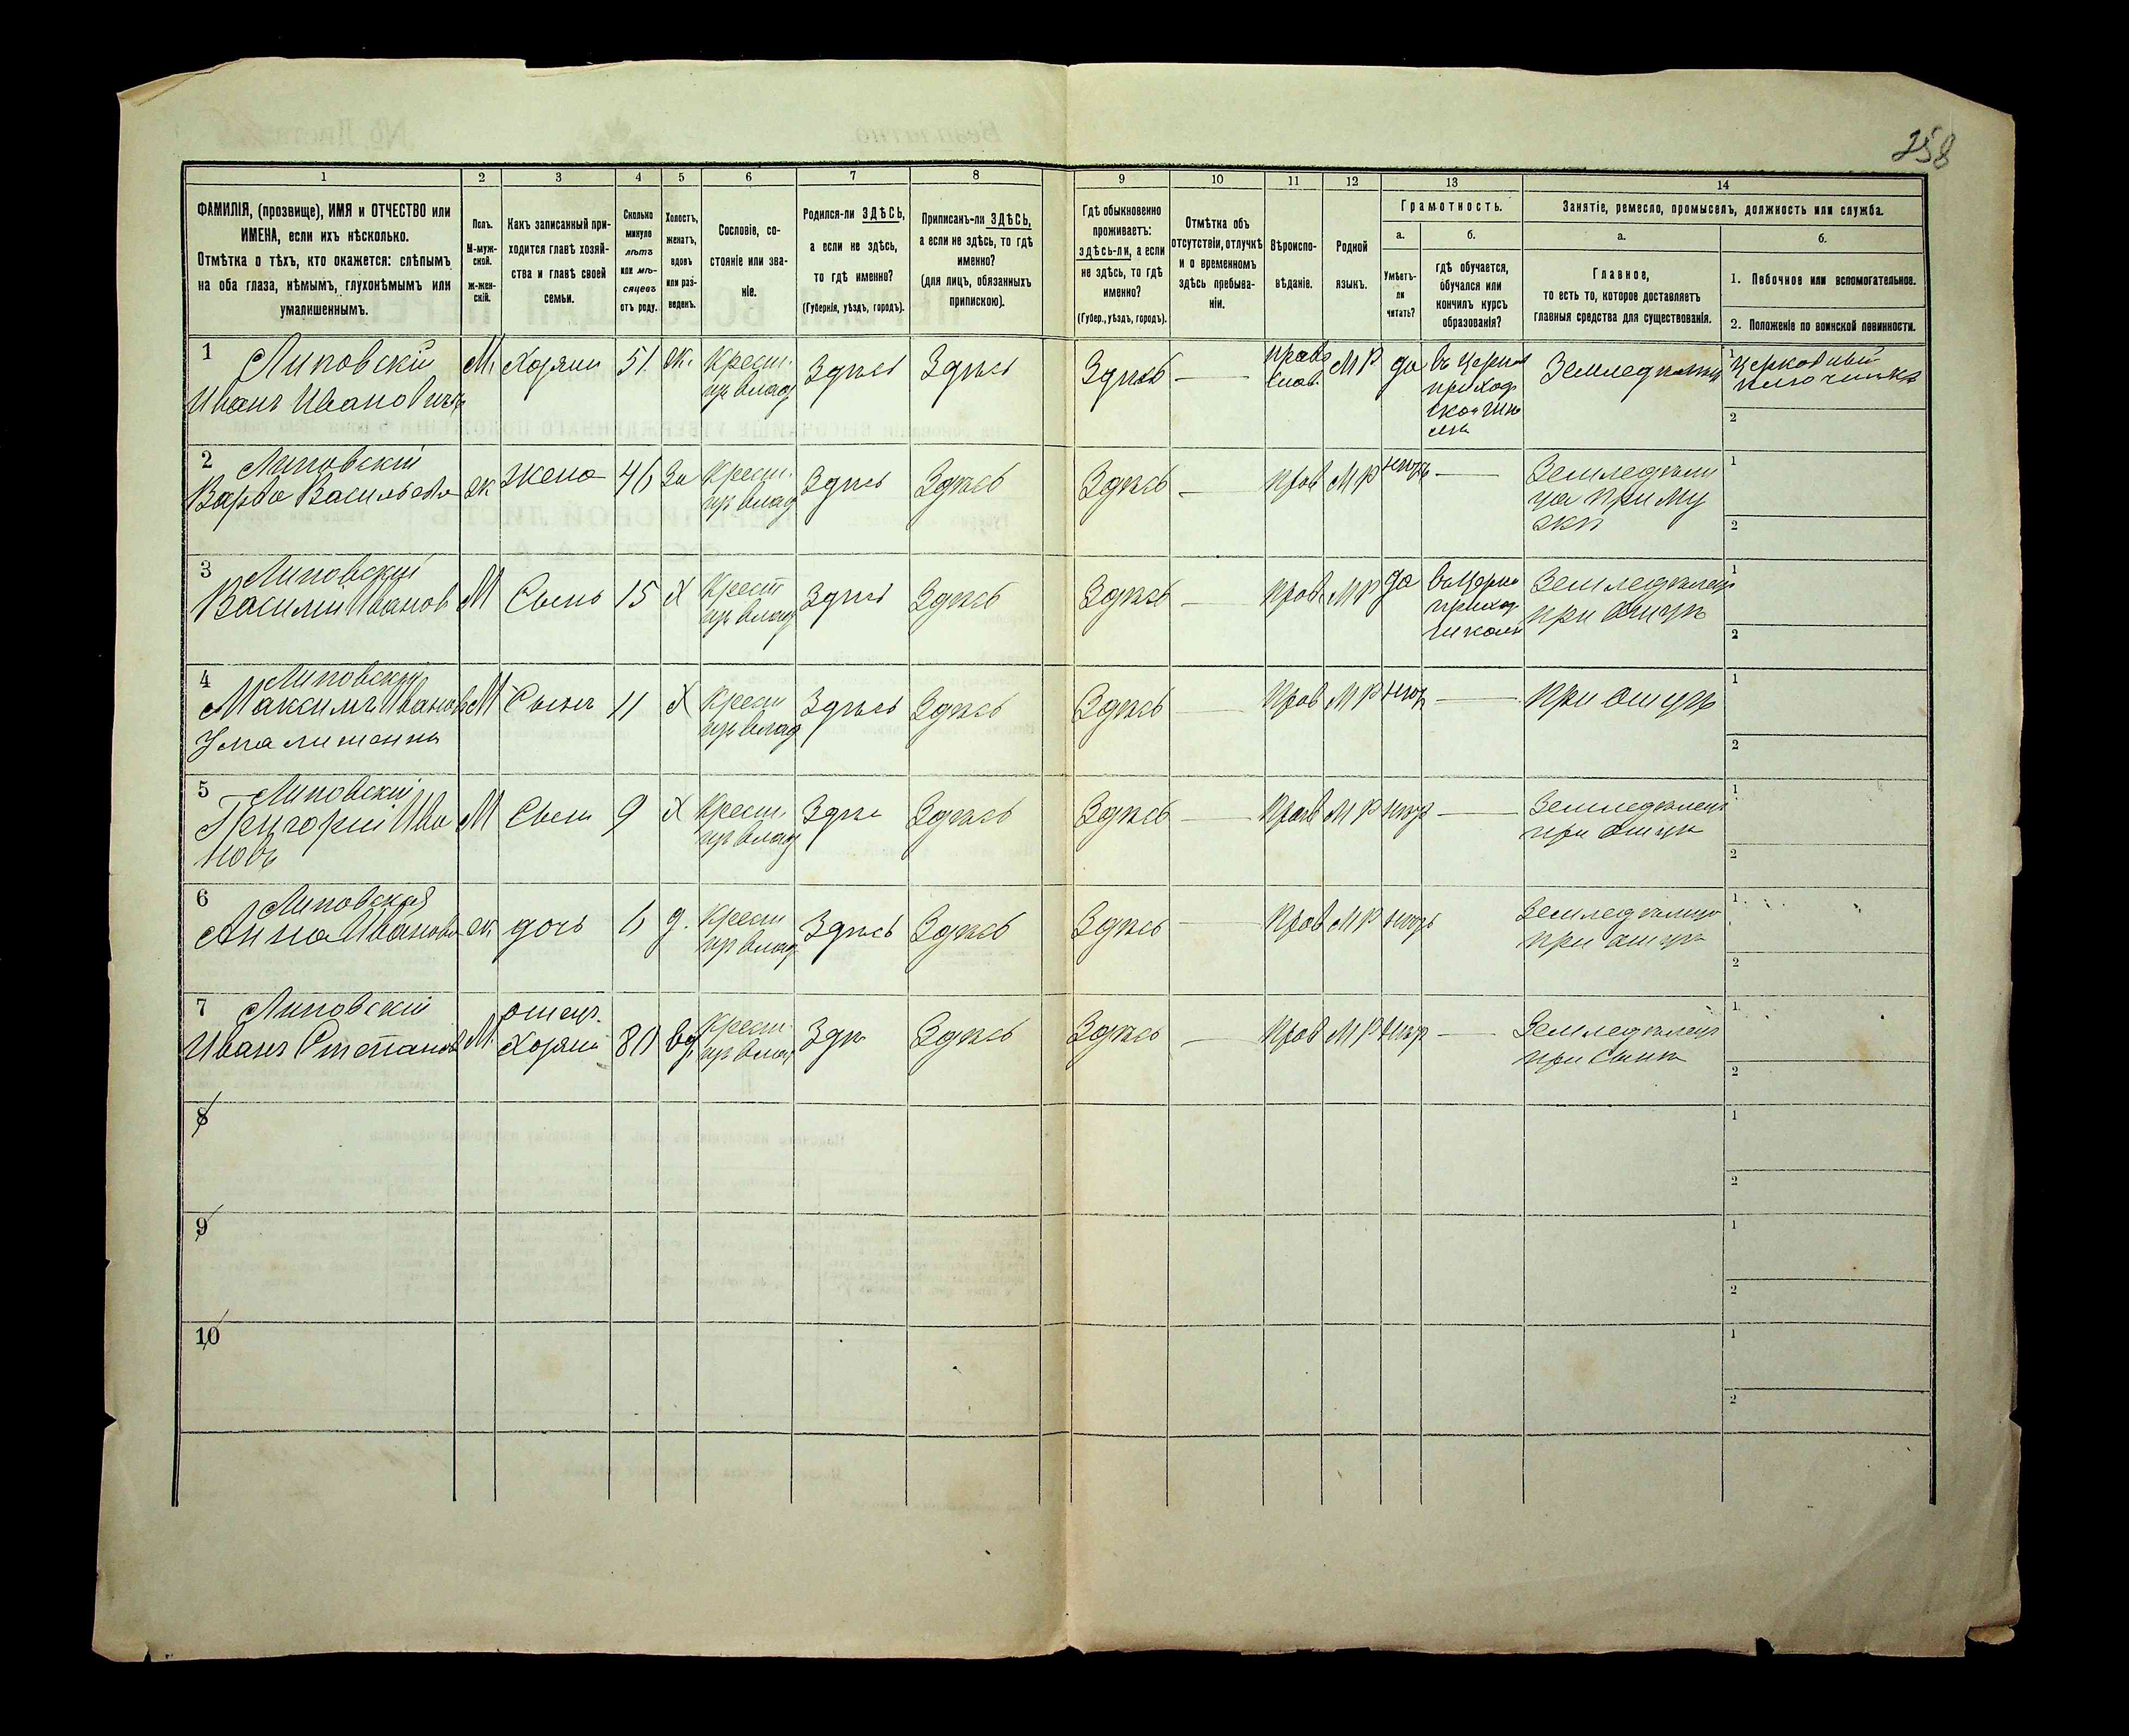 258
1
2
3
4
5
6
7
8
9
10
11
12
13
14
ФАМИЛІЯ, (прозвище), ИМЯ и ОТЧЕСТВО или
ИМЕНА, если ихъ нѣсколько.
Отмѣтка о тѣхъ, кто окажется: слѣпымъ
на оба глаза, нѣмымъ, глухонѣмымъ или
умалишеннымъ.
Полъ.
М-муж-
ской.
Ж-жен-
скій.
Какъ записанный при-
ходится главѣ хозяй-
ства и главѣ своей
семьи.
Сколько
минуло
лѣтъ
или мѣ-
сяцевъ
отъ роду.
Холостъ,
женатъ,
вдовъ
или раз-
веденъ.
Сословіе, со-
стояніе или зва-
ніе.
Родился-ли ЗДѢСЬ,
а если не здѣсь,
то гдѣ именно?
(Губернія, уѣздъ, городъ).
Приписанъ-ли ЗДѢСЬ,
а если не здѣсь, то гдѣ
именно?
(для лицъ, обязанныхъ
припискою).
Гдѣ обыкновенно
проживаетъ:
здѣсь-ли, а если
не здѣсь, то гдѣ
именно?
(Губер., уѣздъ, городъ).
Отмѣтка объ
отсутствіи, отлучкѣ
и о временномъ
здѣсь пребыва-
ніи.
Вѣроиспо-
вѣданіе.
Родной
языкъ.
Грамотность.
а.
Умѣетъ-
ли
читать?
б.
гдѣ обучается,
обучался или
кончилъ курсъ
образованія?
Занятіе, ремесло, промыселъ, должность или служба.
а.
Главное,
то есть то, которое доставляетъ
главныя средства для существованія.
б.
1. Побочное или вспомогательное.
2. Положеніе по воинской повинности.
1 Липовскій
Иванъ Ивановичъ
М. Хозяин 51. ж. Крест.
из влад
Здѣсь Здѣсь Здѣсь — право
слав. М Р да въ церков
приход
ской шко
лѣ
Земледѣлец
1 Церковный
ключникъ
2
2 Липовскій
Варва Васильева
ж жена 46 За Крест.
из влад
Здѣсь Здѣсь Здѣсь — прав М Р негр —
Земледѣли
ца при му
жѣ
1
2
3 Липовскій
Василій Иванов
М Сынъ 15 Х Крест
из влад
Здѣсь Здѣсь Здѣсь — прав М Р да в церко
приход
школѣ
Земледѣлец
при отцѣ
1
2
4 Липовскій
Максимъ Иванов
Умалишенны
М Сынъ 11 Х Крест
из влад
Здѣсь Здѣсь Здѣсь — прав М Р негр —
при отцѣ
1
2
5 Липовскій
Григорій Ива
новъ
М Сын 9 Х Крест.
из влад
Здѣс Здѣсь Здѣсь — прав М Р негр —
Земледѣлец
при отцѣ
1
2
6 Липовская
Анна Иванова
ж дочь 6 д. Крест
из влад
Здѣсь Здѣсь Здѣсь — прав М Р негр
Земледѣлица
при отцѣ
1
2
7 Липовскій
Иванъ Степанов
М. отец
Хозяин 80 вд Крест
из влад
Здѣ Здѣсь Здѣсь — прав М Р негр —
Земледѣлец
при сынѣ
1
2
8
1
2
9
1
2
10
1
2